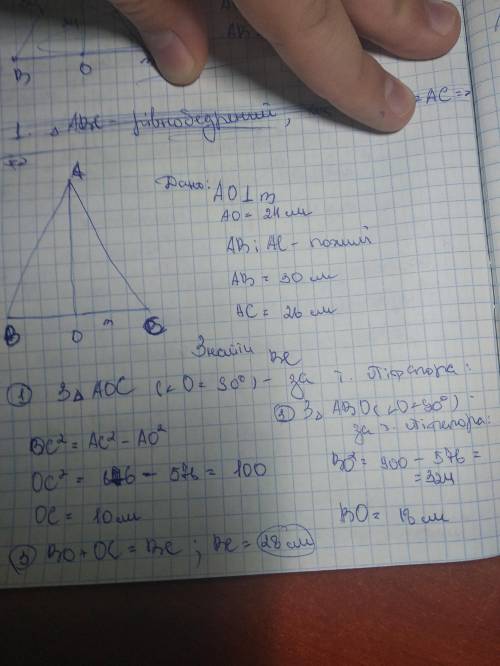 B O
1. △ABC – рівнобедрений, = AC =>
=>
A
B O m C
Дано: AO ⊥ m
AO = 24 см
AB; AC – похилі
AB = 30 см
AC = 26 см
Знайти BC
① З △AOC (∠O = 90°) – за т. Піфагора:
OC² = AC² – AO²
OC² = 676 – 576 = 100
OC = 10 см
② З △ABO (∠O = 90°)
за т. Піфагора:
BO² = 900 – 576 =
= 324
BO = 18 см
③ BO + OC = BC; BC = 28 см